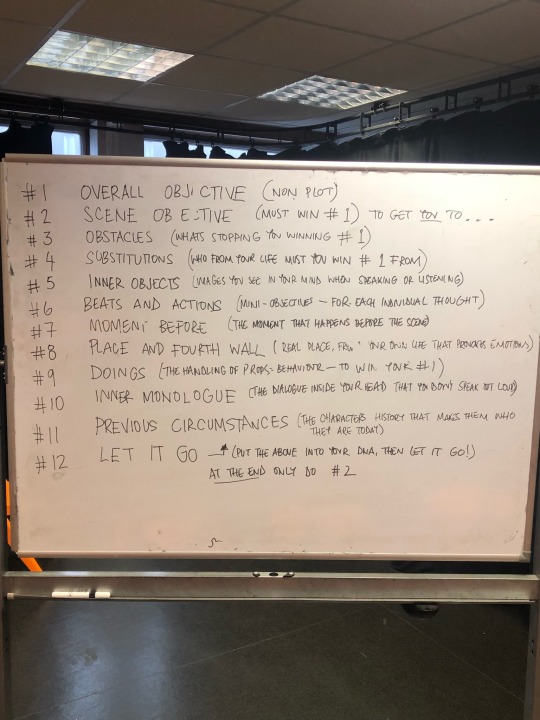 #1 OVERALL OBJECTIVE (NON PLOT)
#2 SCENE OBJECTIVE (MUST WIN #1) TO GET YOU TO...
#3 OBSTACLES (WHATS STOPPING YOU WINNING #1)
#4 SUBSTITUTIONS (WHO FROM YOUR LIFE MUST YOU WIN #1 FROM)
#5 INNER OBJECTS (IMAGES YOU SEE IN YOUR MIND WHEN SPEAKING OR LISTENING)
#6 BEATS AND ACTIONS (MINI-OBJECTIVES - FOR EACH INDIVIDUAL THOUGHT)
#7 MOMENT BEFORE (THE MOMENT THAT HAPPENS BEFORE THE SCENE)
#8 PLACE AND FOURTH WALL (REAL PLACE, FROM YOUR OWN LIFE THAT PROVOKES EMOTIONS)
#9 DOINGS (THE HANDLING OF PROPS- BEHAVIOUR - TO WIN YOUR #1)
#10 INNER MONOLOGUE (THE DIALOGUE INSIDE YOUR HEAD THAT YOU DON'T SPEAK OUT LOUD)
#11 PREVIOUS CIRCUMSTANCES (THE CHARACTERS HISTORY THAT MAKES THEM WHO
THEY ARE TODAY)
#12 LET IT GO → (PUT THE ABOVE INTO YOUR DNA, THEN LET IT GO!)
AT THE END ONLY DO #2